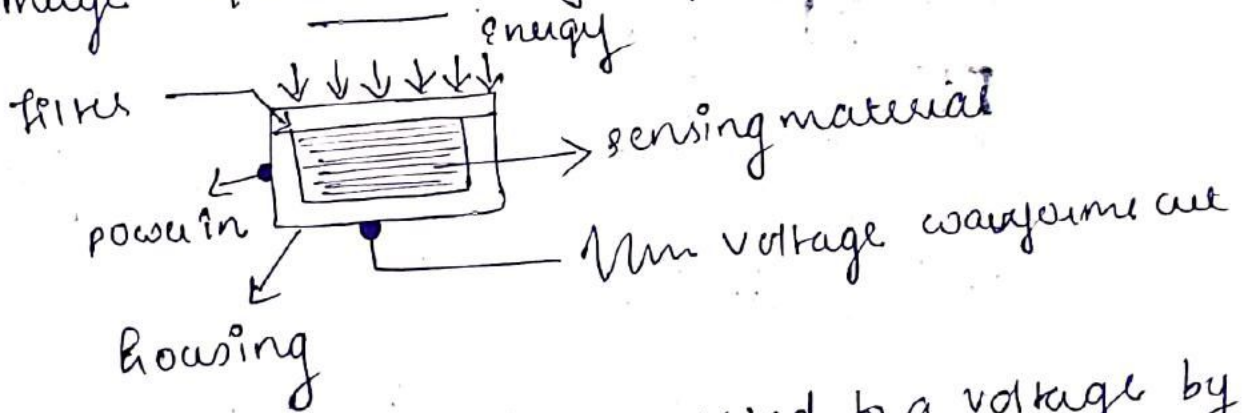 energy
filter
sensing material
power in
voltage waveform out
housing
to a voltage by